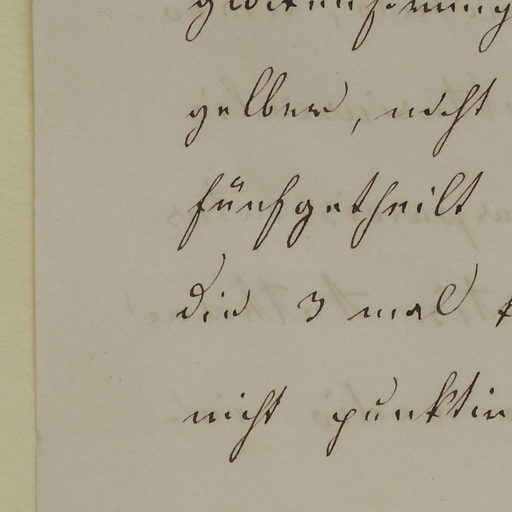 glockenförmig
gelber, nicht
fünfgetheilt
die 3 mal
nicht punktir